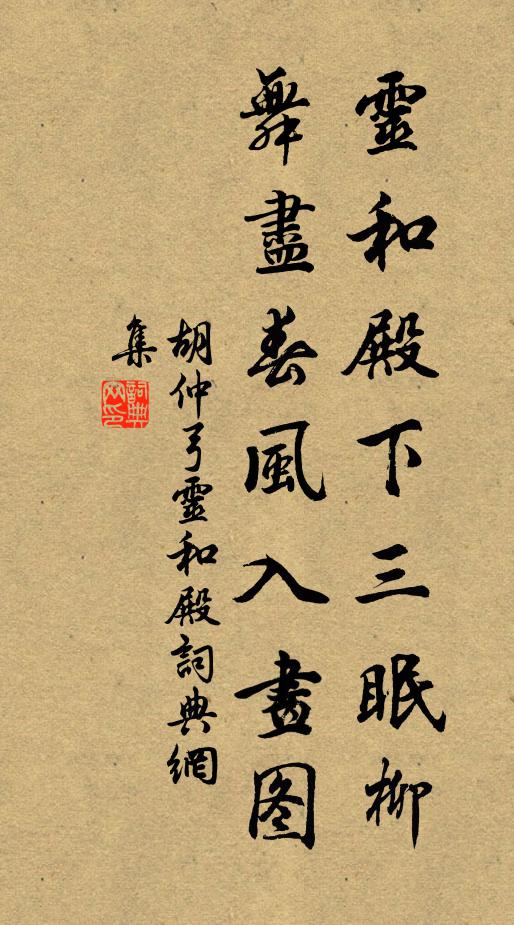 靈和殿下三眠柳
舞盡春風入畫图
胡仲弓靈和殿詞典網
集
詞典
网印